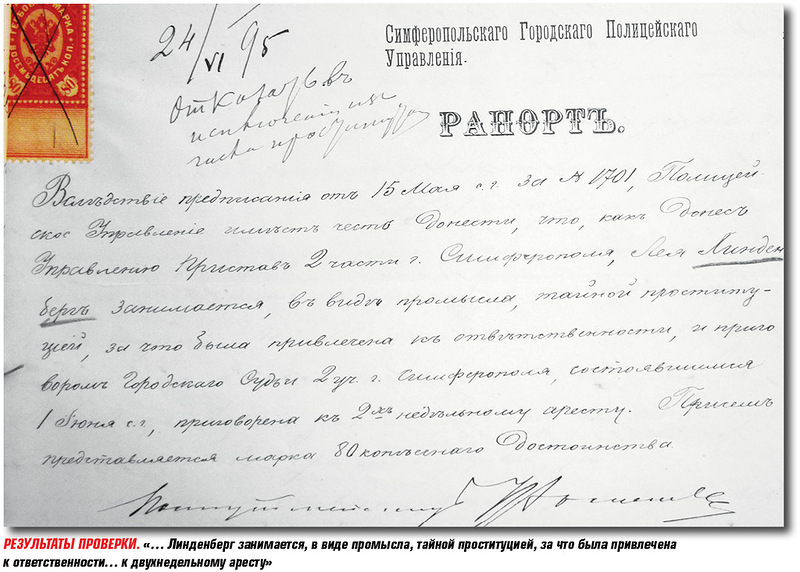 МАРКА
ВОСЕМЬДЕСЯТЪ КОП.
80
24/VI 95
Отказать въ
исключеніи изъ
числа проститутокъ
Симферопольскаго Городскаго Полицейскаго
Управленія.
РАПОРТЪ.
Вслѣдствіе предписанія отъ 15 Мая с.г. за № 1701, Полицей-
ское Управленіе имѣетъ честь донести, что, какъ донесъ
Управленію Приставъ 2 части г. Симферополя, Лея Линден
бергъ занимается, въ видѣ промысла, тайной проститу-
ціей, за что была привлечена къ отвѣтственности, и приго
воромъ Городскаго Судьи 2 уч. г. Симферополя, состоявшимся
1 Іюня с.г., приговорена къ 2хъ недѣльному аресту. Присемъ
представляется марка 80 копѣечнаго достоинства
Полицеймейстеръ
РЕЗУЛЬТАТЫ ПРОВЕРКИ. «... Линденберг занимается, в виде промысла, тайной проституцией, за что была привлечена
к ответственности... к двухнедельному аресту»